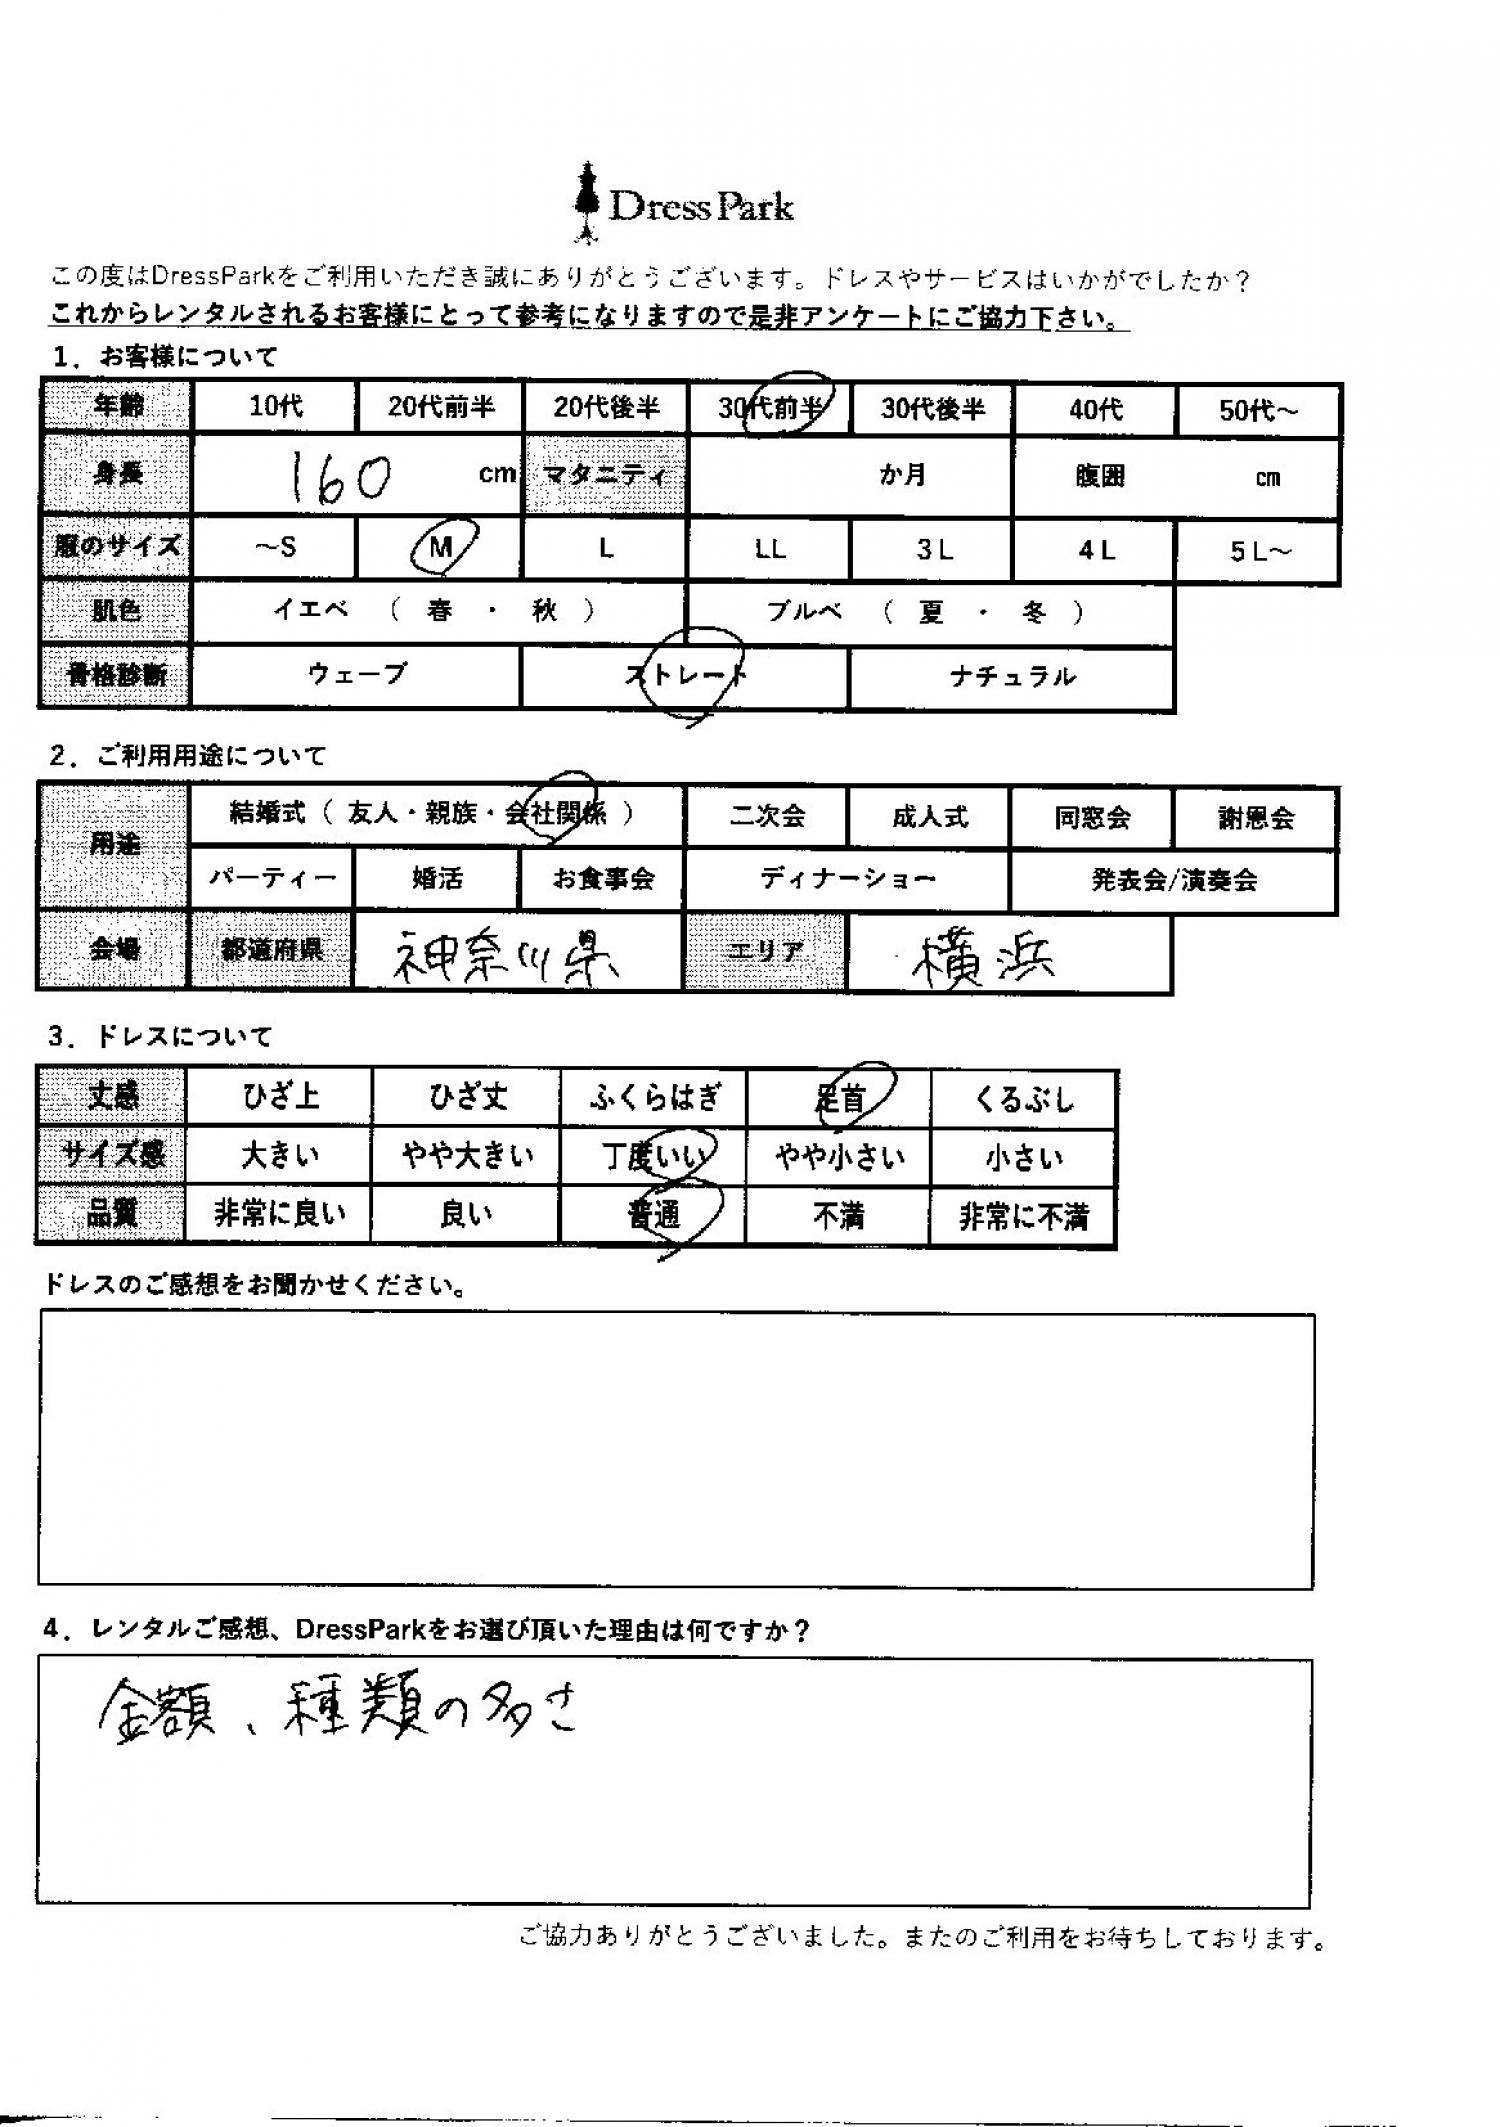 DressPark
この度はDressParkをご利用いただき誠にありがとうございます。ドレスやサービスはいかがでしたか？
これからレンタルされるお客様にとって参考になりますので是非アンケートにご協力下さい。
1．お客様について
年齢 10代 20代前半 20代後半 30代前半 30代後半 40代 50代～
身長 160 cm マタニティ か月 腹囲 cm
服のサイズ ～S M L LL 3L 4L 5L～
肌色 イエベ （ 春 ・ 秋 ） ブルベ （ 夏 ・ 冬 ）
骨格診断 ウェーブ ストレート ナチュラル
2．ご利用用途について
用途 結婚式（ 友人・親族・会社関係 ） 二次会 成人式 同窓会 謝恩会
パーティー 婚活 お食事会 ディナーショー 発表会/演奏会
会場 都道府県 神奈川県 エリア 横浜
3．ドレスについて
丈感 ひざ上 ひざ丈 ふくらはぎ 足首 くるぶし
サイズ感 大きい やや大きい 丁度いい やや小さい 小さい
品質 非常に良い 良い 普通 不満 非常に不満
ドレスのご感想をお聞かせください。
4．レンタルご感想、DressParkをお選び頂いた理由は何ですか？
金額、種類の多さ
ご協力ありがとうございました。またのご利用をお待ちしております。